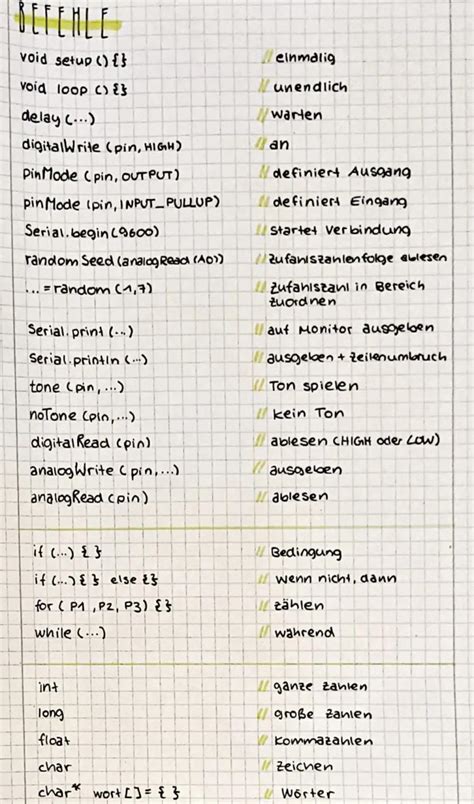 BEFEHLE
void setup () {} // einmalig
void loop () {} // unendlich
delay (...) // warten
digitalWrite (pin, HIGH) // an
PinMode (pin, OUTPUT) // definiert Ausgang
pinMode (pin, INPUT_PULLUP) // definiert Eingang
Serial.begin (9600) // startet Verbindung
randomSeed (analogRead (A0)) // Zufahlszahlenfolge ablesen
... = random (1,7) // Zufahlszahl in Bereich
zuordnen
Serial.print (...) // auf Monitor ausgeben
Serial.println (...) // ausgeben + Zeilenumbruch
tone (pin, ...) // Ton spielen
noTone (pin, ...) // kein Ton
digitalRead (pin) // ablesen (HIGH oder LOW)
analogWrite (pin, ...) // ausgeben
analogRead (pin) // ablesen
if (...) {} // Bedingung
if (...) {} else {} // wenn nicht, dann
for (P1, P2, P3) {} // zählen
while (...) // während
int // ganze Zahlen
long // große Zahlen
float // Kommazahlen
char // Zeichen
char* wort [] = {} // Wörter